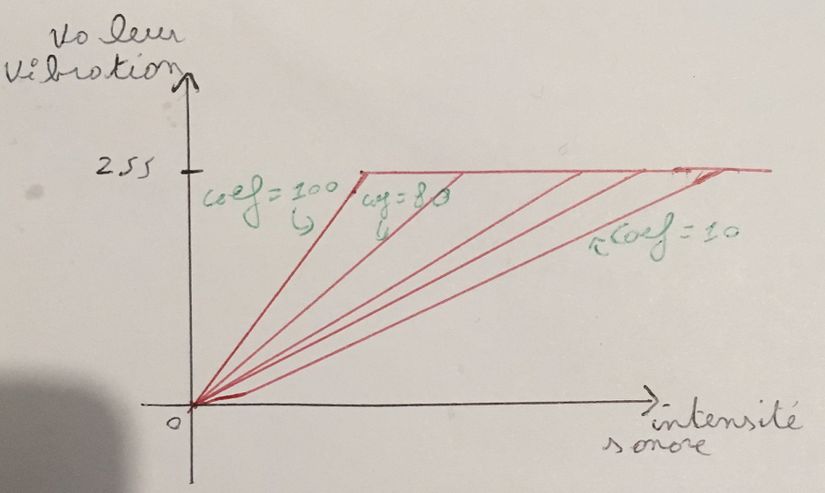 valeur
vibration
255
coef = 100
coef = 80
coef = 10
0
intensité
sonore